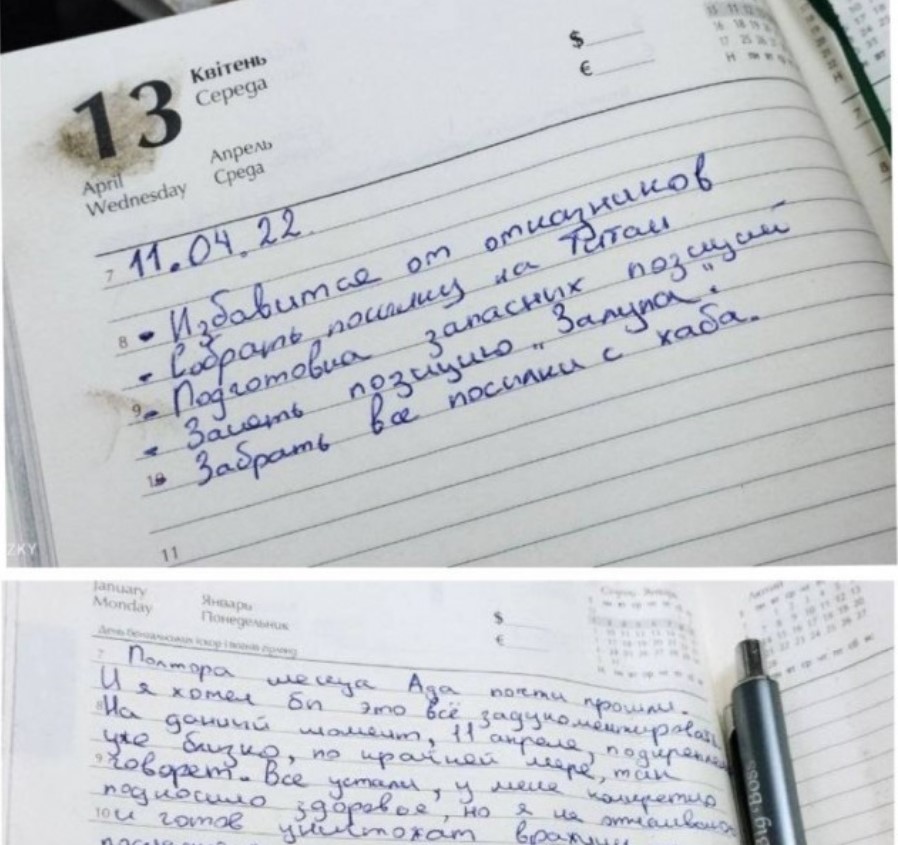 13
Квітень
Середа
$
€
April
Wednesday
Апрель
Среда
7 11.04.22.
8 - Избавится от отказников
- Собрать посылку на Титан
9 - Подготовка запасных позиций
- Занять позицию "Залупа".
10 - Забрать все посылки с хаба.
11
ZKY
January
Monday
Январь
Понедельник
$
€
7 Полтора месяца Ада почти прошли.
И я хотел бы это всё задукоментировать
8 На данный момент, 11 апреля,
уже близко, по крайней мере, так
9 говорят. Все устали, у меня конкретно
подкосило здоровье, но я не
10 и готов уничтожат
Big Boss